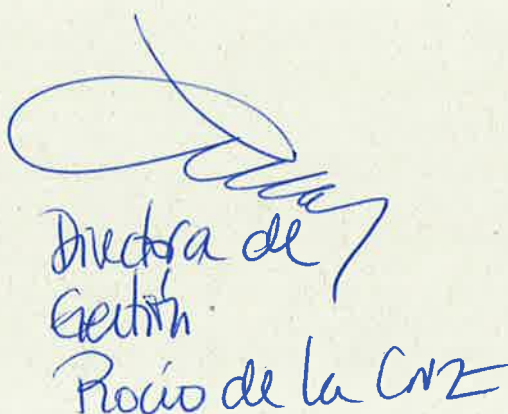 Directora de
Gestión
Rocío de la Cruz